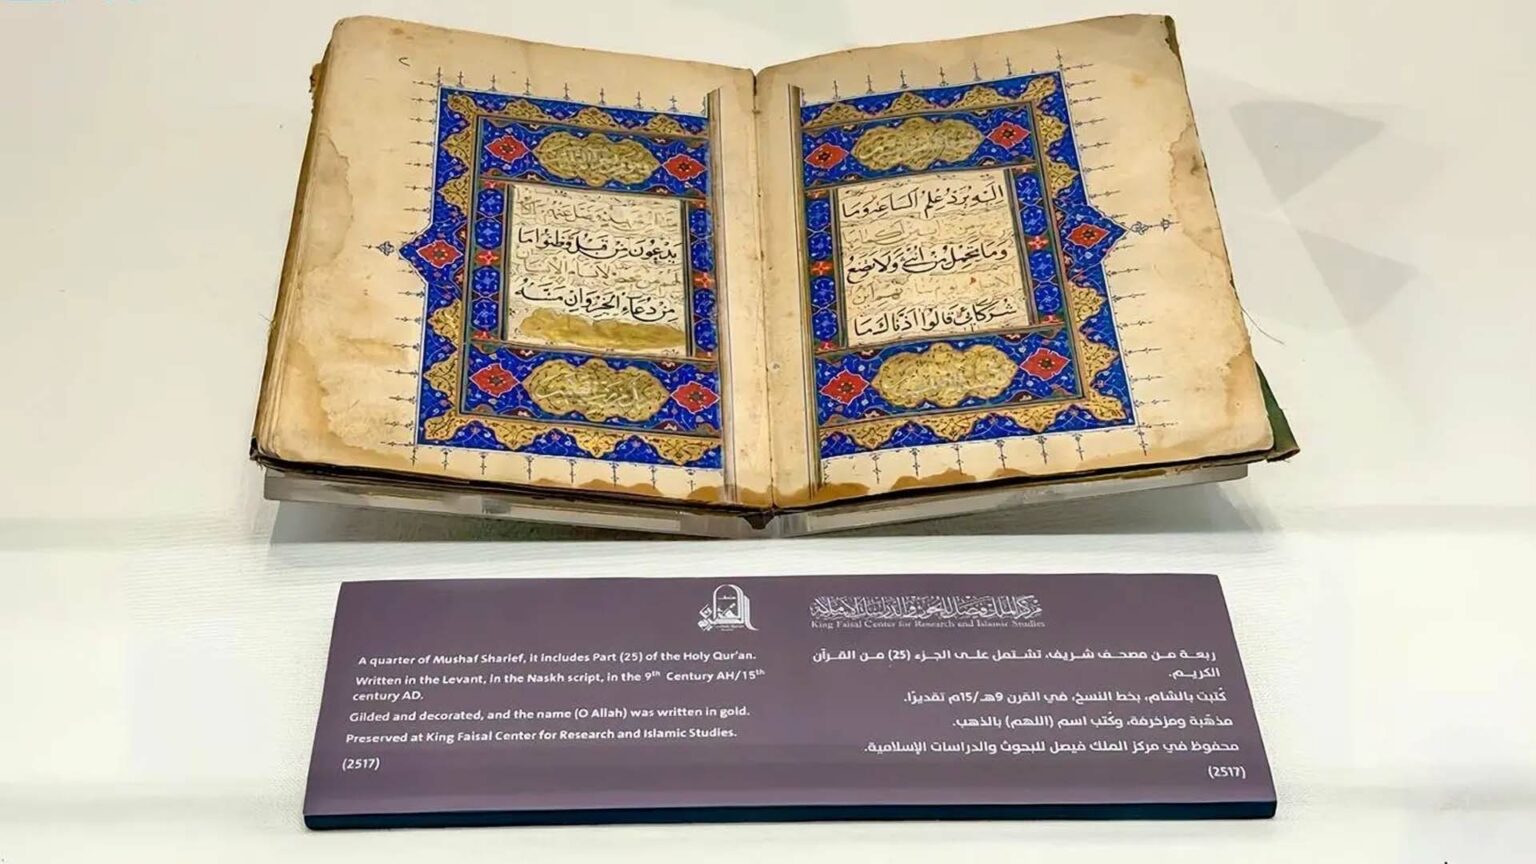 اليه يرد علم الساعة وما
وما تحمل من انثى ولا تضع
شركائي قالوا آذناك ما
يدعون من قبل وظنوا ما
من دعاء الخير وان مسه
مركز الملك فيصل للبحوث والدراسات الإسلامية
King Faisal Center for Research and Islamic Studies
A quarter of Mushaf Sharief, it includes Part (25) of the Holy Qur'an.
Written in the Levant, in the Naskh script, in the 9th Century AH/15th
century AD.
Gilded and decorated, and the name (O Allah) was written in gold.
Preserved at King Faisal Center for Research and Islamic Studies.
(2517)
ربعة من مصحف شريف، تشتمل على الجزء (25) من القرآن
الكريم.
كُتبت بالشام، بخط النسخ، في القرن 9هـ/15م تقديرًا.
مذهّبة ومزخرفة، وكُتب اسم (اللهم) بالذهب.
محفوظ في مركز الملك فيصل للبحوث والدراسات الإسلامية.
(2517)